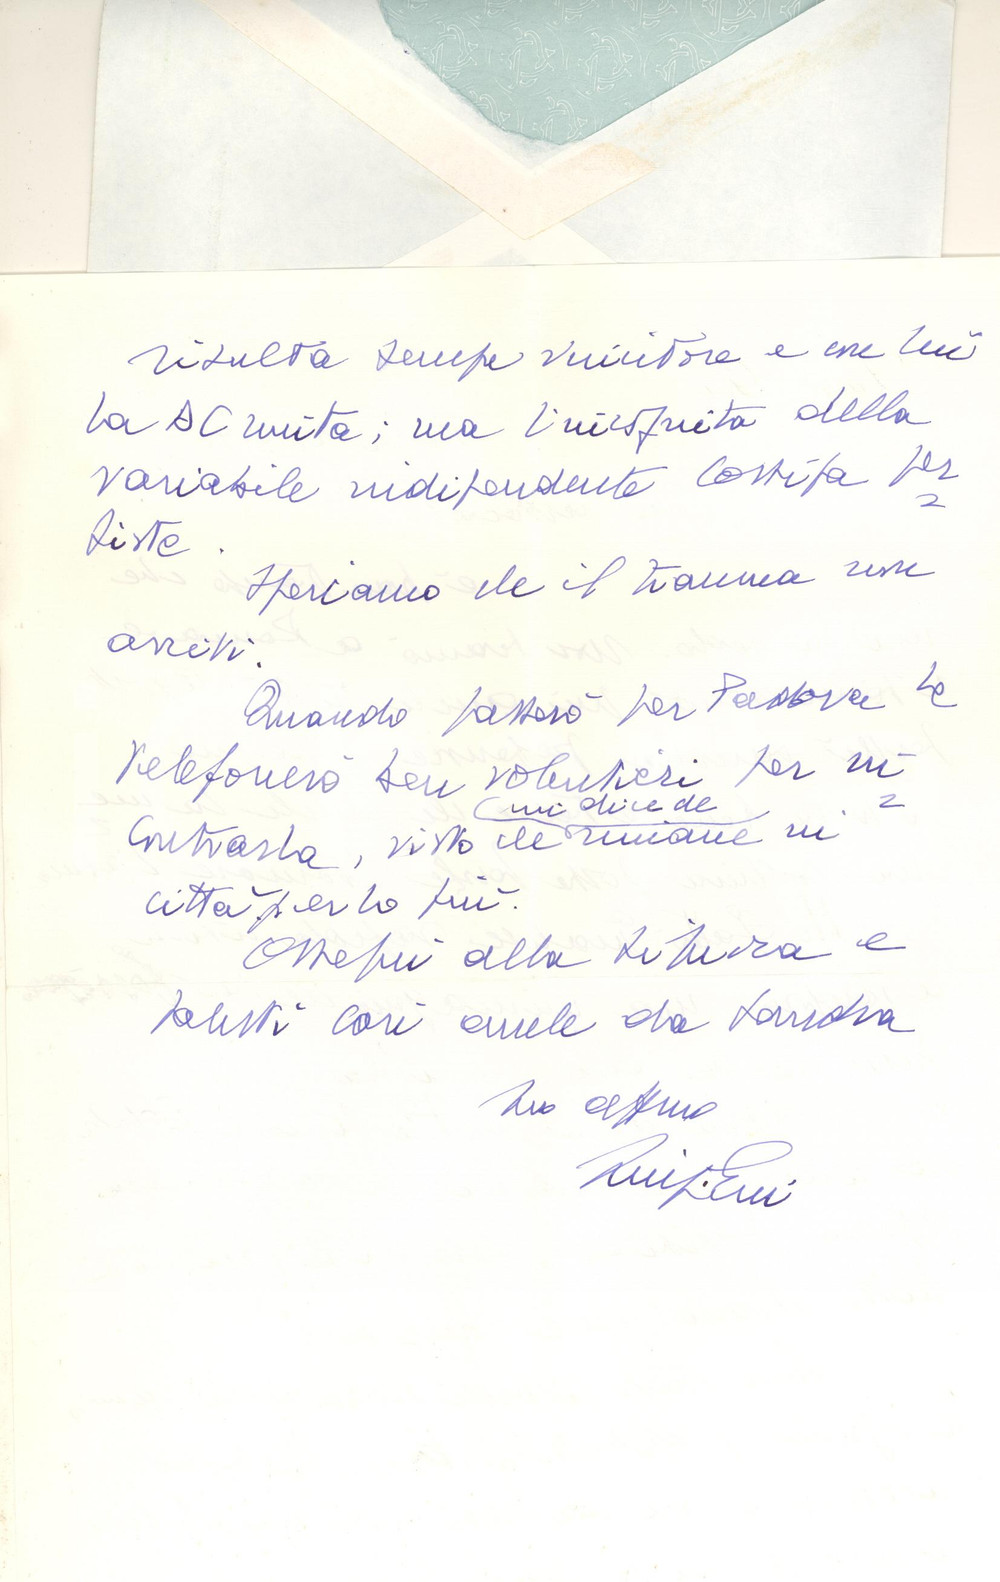 risulta sempre vincitore e con lui
la DC unita; ma l'incognita della
variabile indipendente Cossiga per=
siste.
Speriamo che il trauma non
arrivi.
Quando passerò per Padova Le
telefonerò ben volentieri per in=
contrarLa, visto che (mi dice che) rimane in
città per lo più.
Ossequi alla Signora e
saluti cari anche da Sandra
Suo aff.mo
Luigi